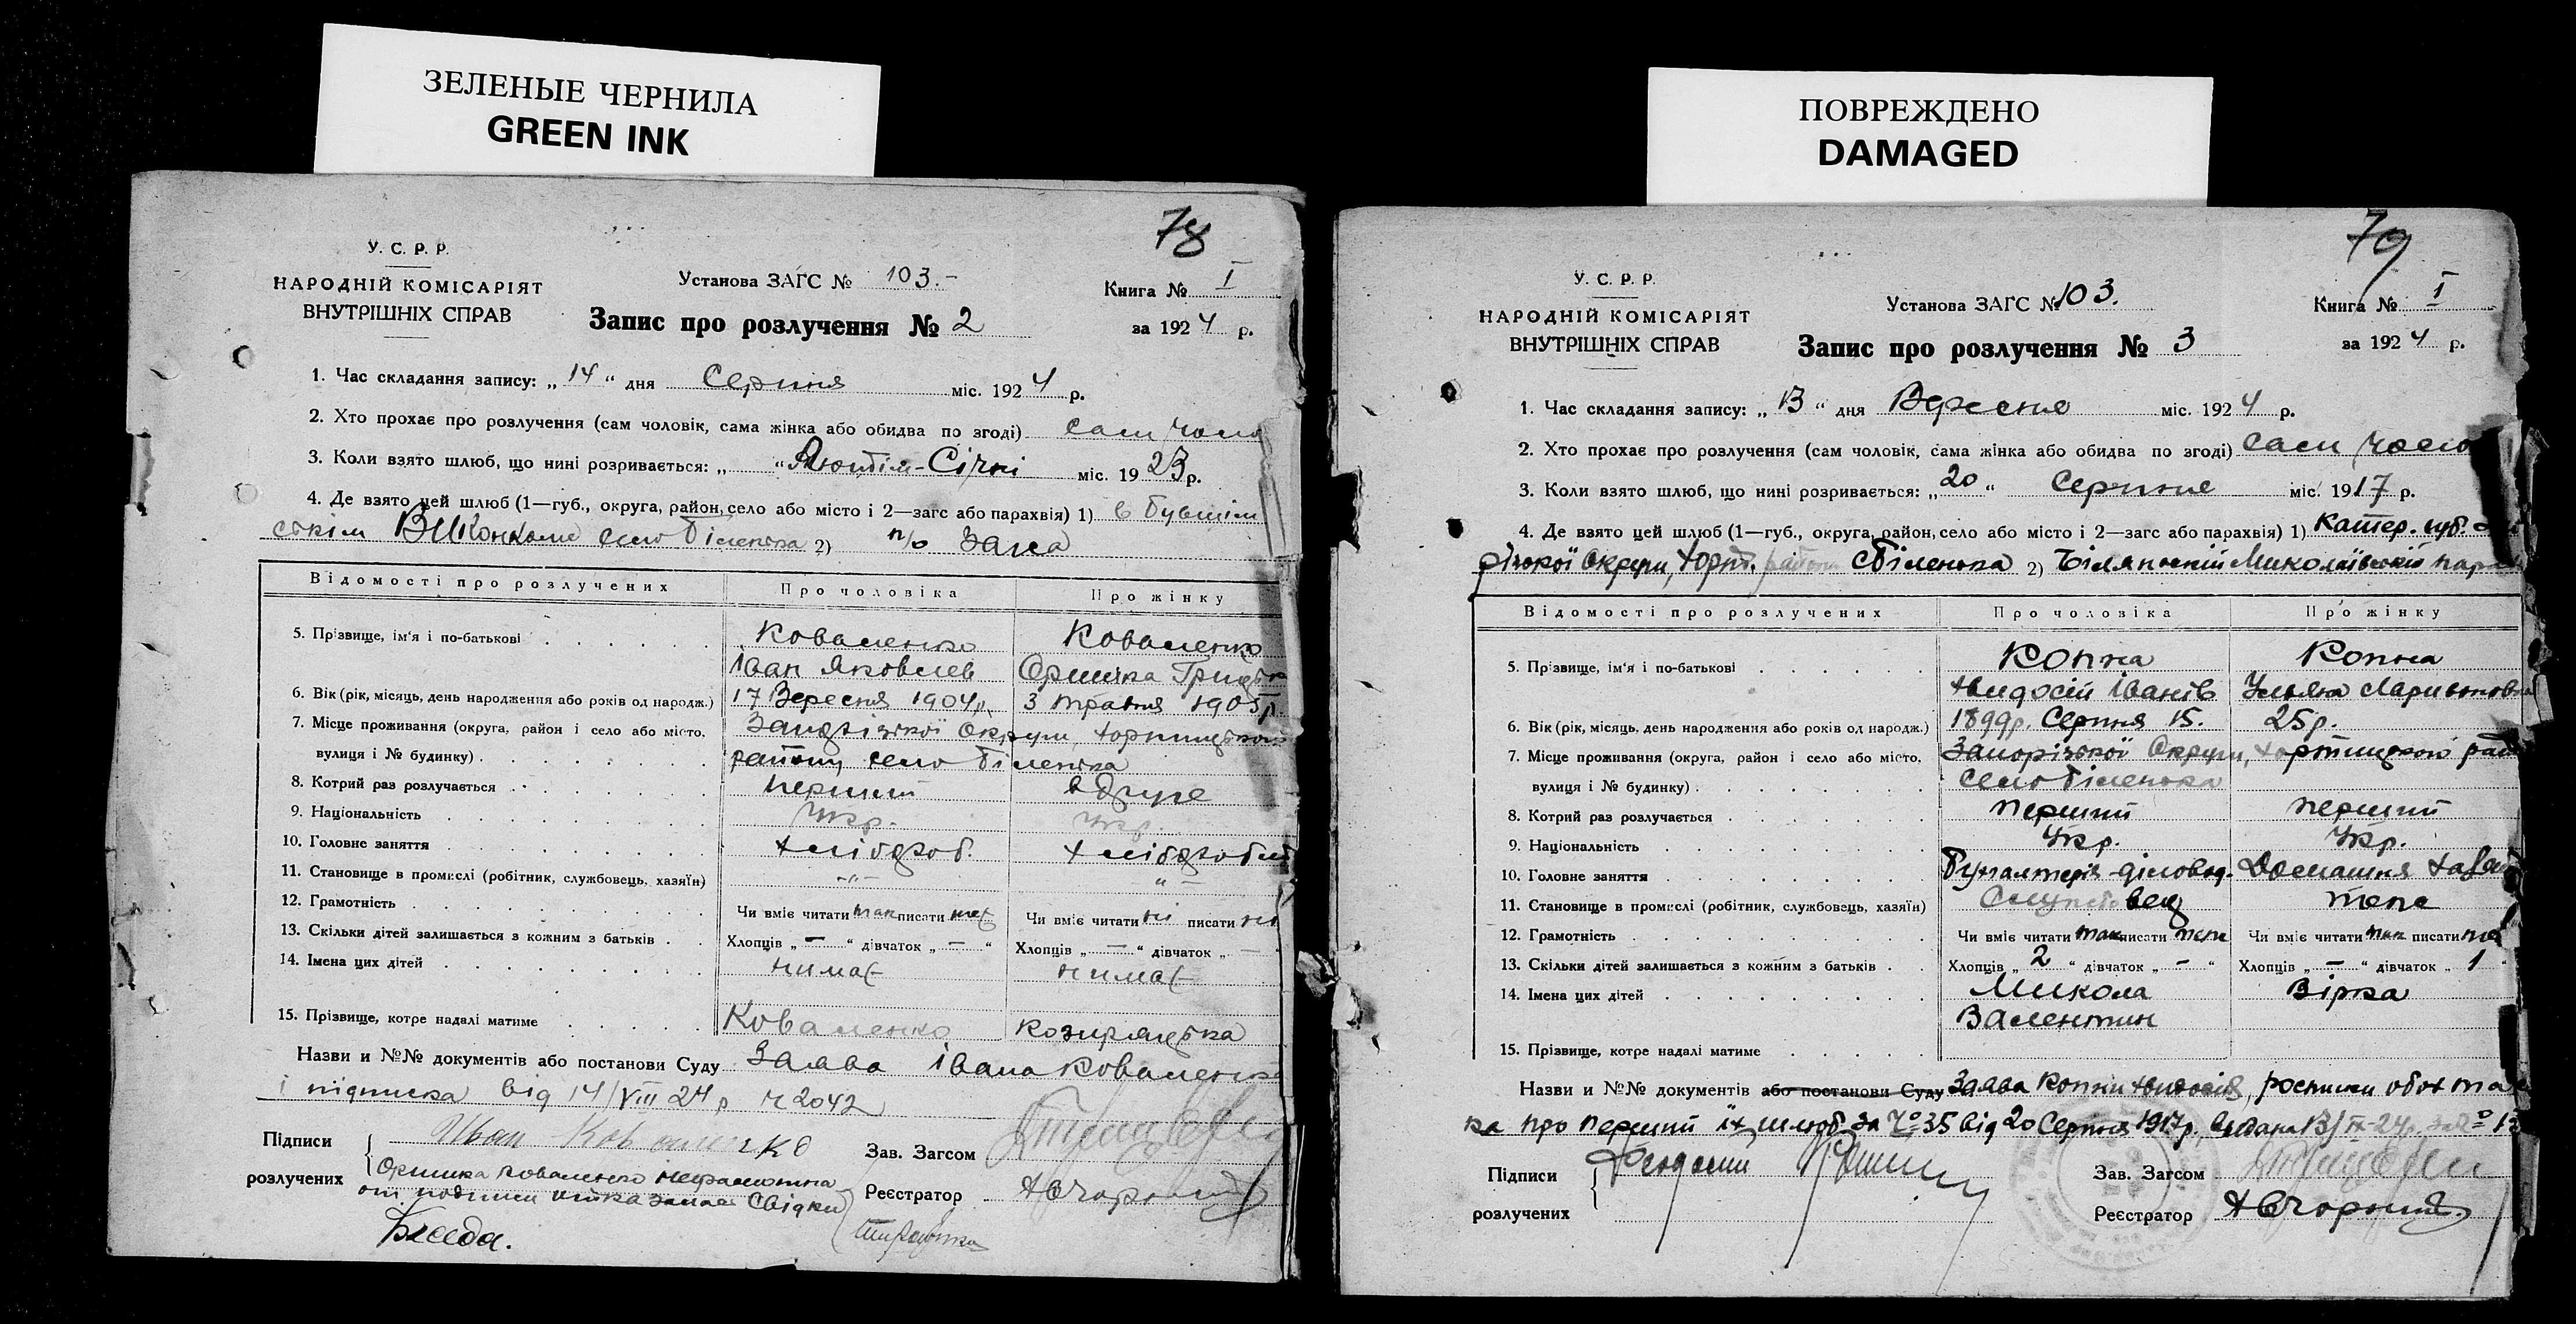 ЗЕЛЕНЫЕ ЧЕРНИЛА
GREEN INK
78
У. С. Р. Р.
НАРОДНІЙ КОМІСАРІЯТ
ВНУТРІШНІХ СПРАВ
Установа ЗАГС № 103.-
Книга № I
Запис про розлучення № 2
за 1924 р.
1. Час складання запису: „14“ дня Серпня міс. 1924 р.
2. Хто прохає про розлучення (сам чоловік, сама жінка або обидва по згоді) сам
3. Коли взято шлюб, що нині розривається: „ “ Січні міс. 1923 р.
4. Де взято цей шлюб (1—губ., округа, район, село або місто і 2—загс або парахвія) 1) в бувшім
ськім село Біленька 2) п/о Загса
Відомості про розлучених Про чоловіка Про жінку
5. Прізвище, ім'я і по-батькові Коваленко Коваленко
Іван Яковлев Оришка
6. Вік (рік, місяць, день народження або років од народж.) 17 Вересня 1904 р. 3 травня 1905 р.
7. Місце проживання (округа, район і село або місто, Запорізької Округи, Хортицького
вулиця і № будинку) району село Біленька
8. Котрий раз розлучається перший вдруге
9. Національність Укр. Укр.
10. Головне заняття хлібороб.
11. Становище в промислі (робітник, службовець, хазяїн) -„- „ -
12. Грамотність Чи вміє читати так писати Чи вміє читати ні писати ні
13. Скільки дітей залишається з кожним з батьків Хлопців „ — “ дівчаток „ — “ Хлопців „ — “ дівчаток „ —
14. Імена цих дітей нимає нимає
15. Прізвище, котре надалі матиме Коваленко
Назви и №№ документів або постанови Суду Заява Івана Коваленка
і підписка від 14/VIII 24 р № 2042
Підписи
розлучених
Иван Коваленко
Оришка Коваленко неграмотна
Свідки
Беседа.
Зав. Загсом
Реєстратор
ПОВРЕЖДЕНО
DAMAGED
79
У. С. Р. Р.
НАРОДНІЙ КОМІСАРІЯТ
ВНУТРІШНІХ СПРАВ
Установа ЗАГС № 103.
Книга № I
Запис про розлучення № 3
за 1924 р.
1. Час складання запису: „13“ дня Вересня міс. 1924 р.
2. Хто прохає про розлучення (сам чоловік, сама жінка або обидва по згоді) сам
3. Коли взято шлюб, що нині розривається: „20“ Серпня міс. 1917 р.
4. Де взято цей шлюб (1—губ., округа, район, село або місто і 2—загс або парахвія) 1) Катер. губ.
різької Округи, Хорт. району с Біленька 2) Білянській Миколаївській
Відомості про розлучених Про чоловіка Про жінку
5. Прізвище, ім'я і по-батькові Копка Копка
Хвидосій Іванів Ульяна
6. Вік (рік, місяць, день народження або років од народж.) 1899 р. Серпня 15. 25 р.
7. Місце проживання (округа, район і село або місто, Запорізької Округи, Хортицького
вулиця і № будинку) село Біленька
8. Котрий раз розлучається перший перший
9. Національність Укр. Укр.
10. Головне заняття Домашня
11. Становище в промислі (робітник, службовець, хазяїн) Службовець теж
12. Грамотність Чи вміє читати так писати теж Чи вміє читати так писати
13. Скільки дітей залишається з кожним з батьків Хлопців „ 2 “ дівчаток „ — “ Хлопців „ — “ дівчаток „ 1 “
14. Імена цих дітей Микола Вірка
Валентин
15. Прізвище, котре надалі матиме
Назви и №№ документів або постанови Суду Заява Копки Хвидосія, росписки обох
про перший їх шлюб за №35 від 20 Серпня 1917 р. видана 13/IX-24р. за №
Підписи
розлучених
Зав. Загсом
Реєстратор